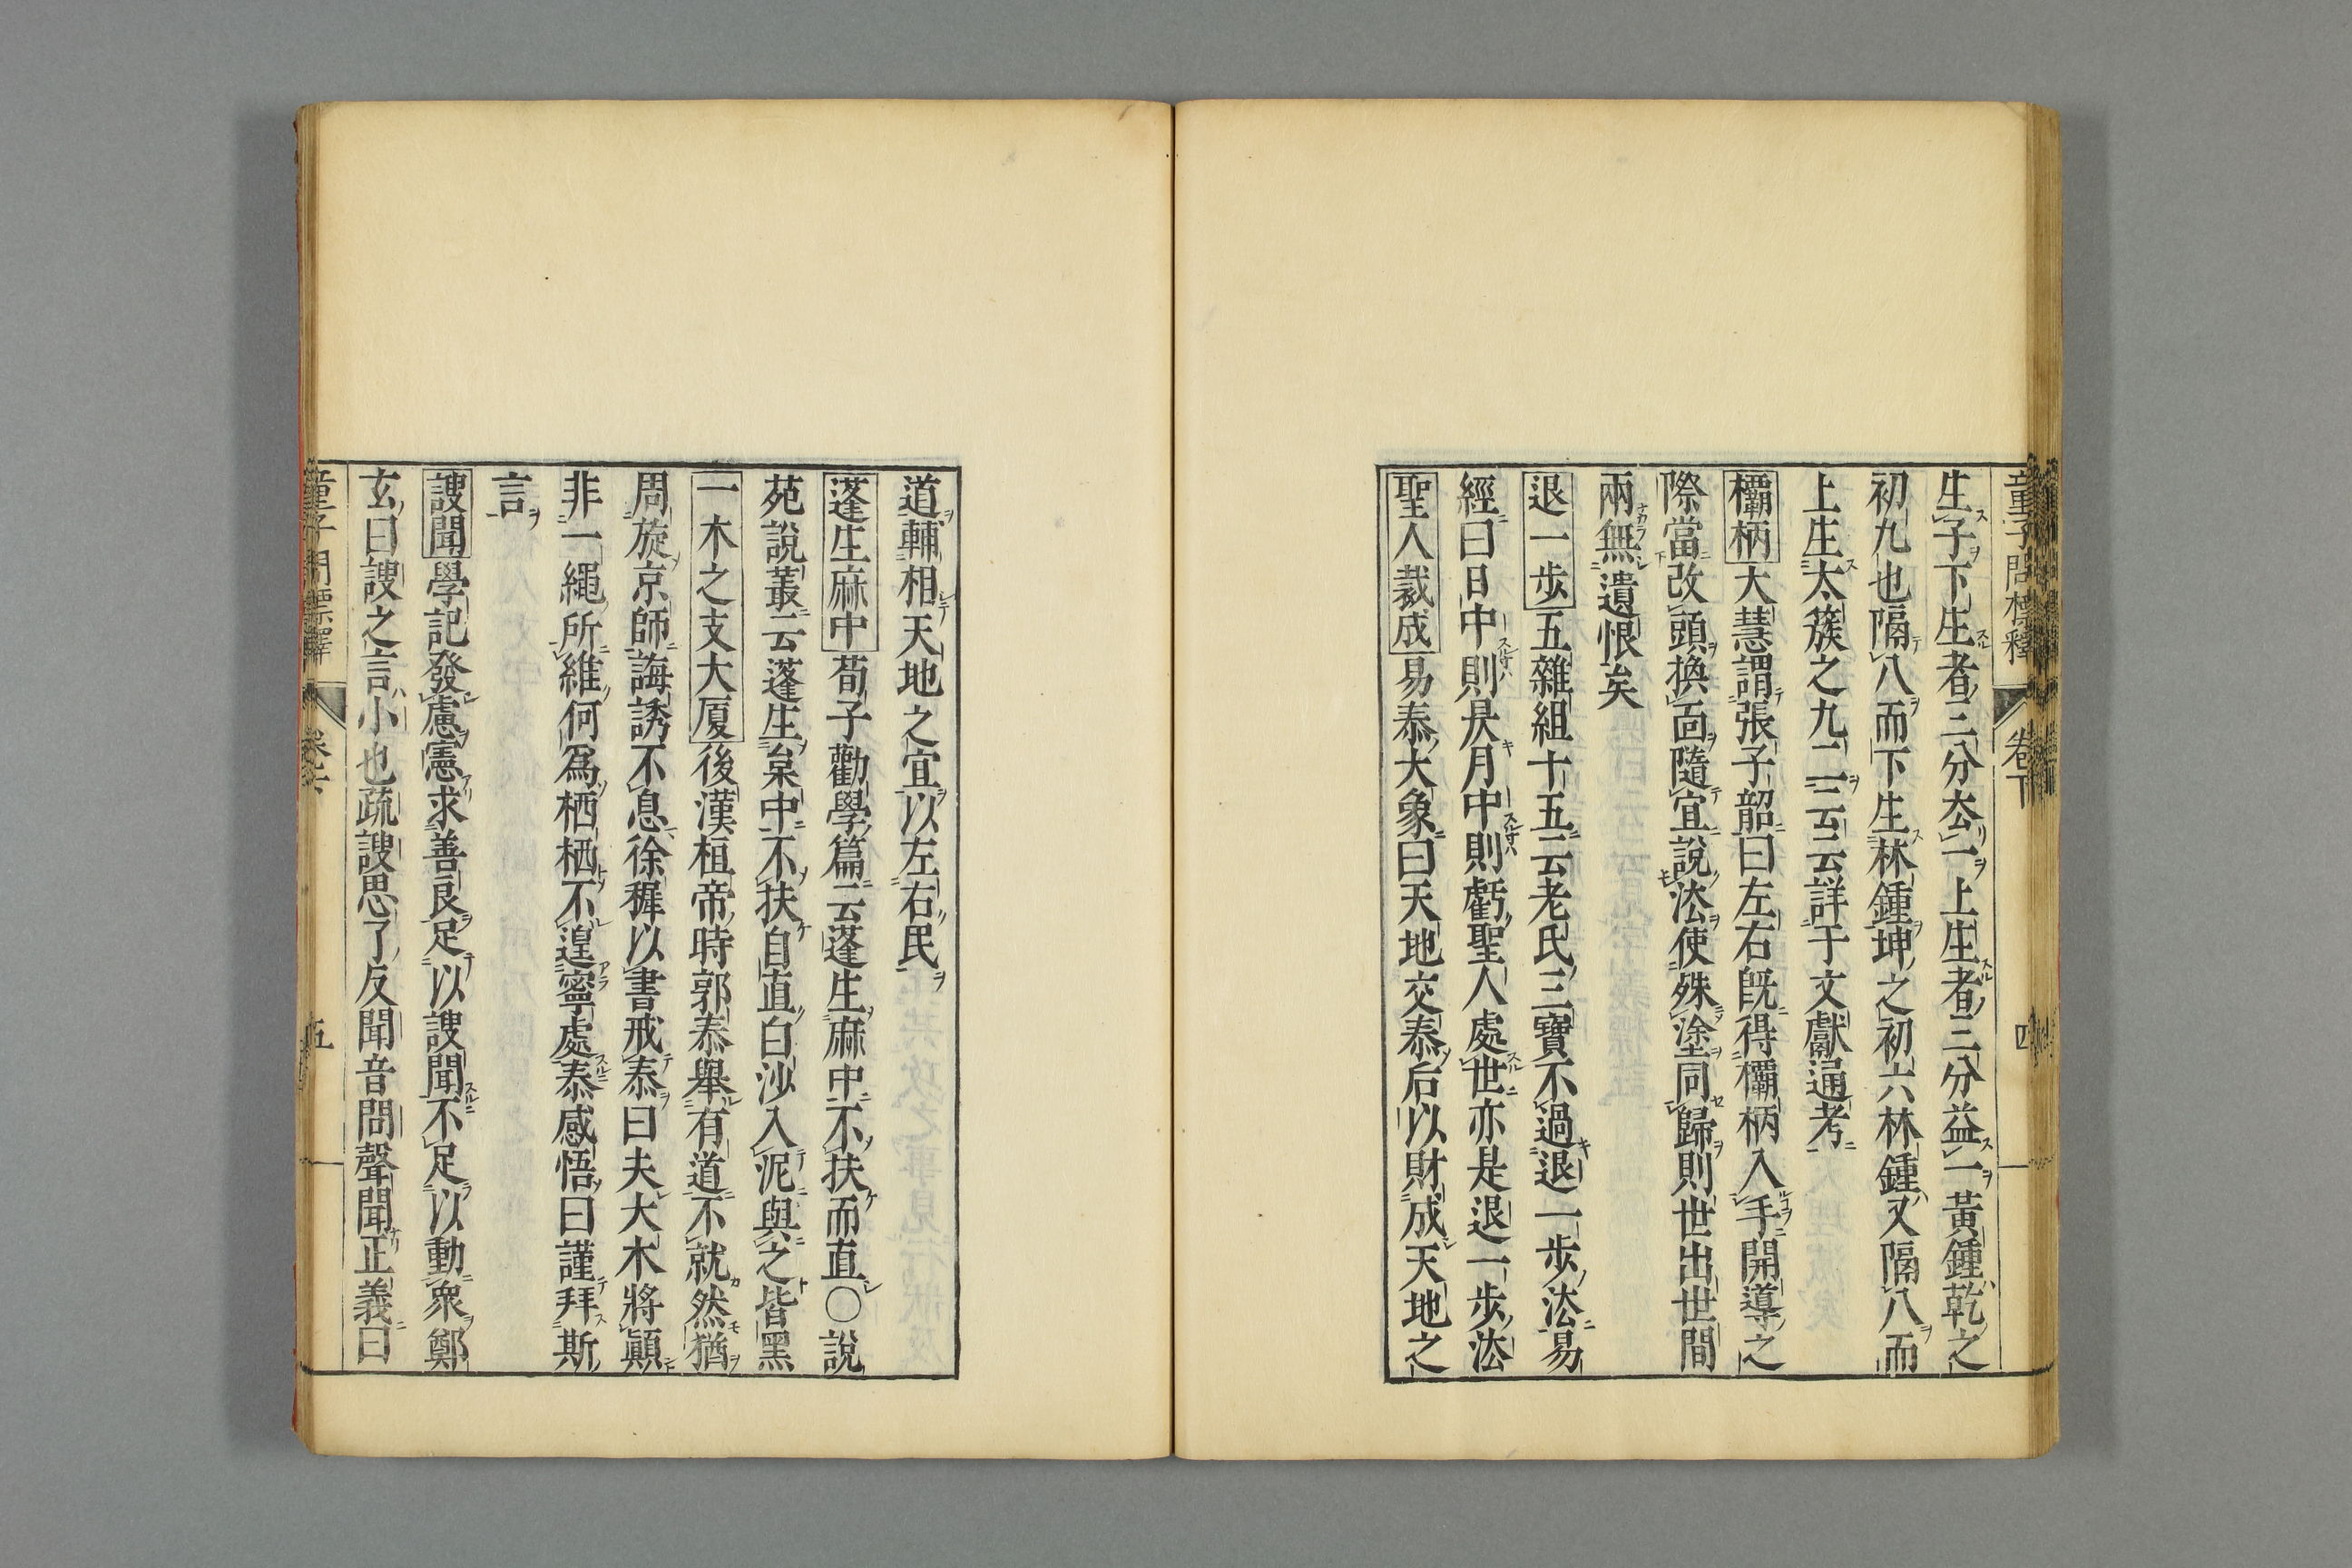 童子問標釋 卷下 四
生子下生者三分厺一上生者三分益一黃鍾乾之
初九也隔八而下生林鍾坤之初六林鍾又隔八而
上生太簇之九二云云詳于文獻通考
欛柄大慧謂張子韶曰左右旣得欛柄入手開導之
際當改頭換面隨宜說法使殊塗同歸則世出世間
兩無遺恨矣
退一歩五雜組十五云老氏三寶不過退一歩法易
經曰日中則昃月中則虧聖人處世亦是退一歩法
聖人裁成易泰大象曰天地交泰后以財成天地之
道輔相天地之宜以左右民
蓬生麻中荀子勸學篇云蓬生麻中不扶而直〇說
苑說叢云蓬生枲中不扶自直白沙入泥與之皆黑
一木之支大厦後漢桓帝時郭泰舉有道不就然猶
周旋京師誨誘不息徐穉以書戒泰曰夫大木將顚
非一繩所維何爲栖栖不遑寧處泰感悟曰謹拜斯
言
謏聞學記發慮憲求善良足以謏聞不足以動衆鄭
玄曰謏之言小也疏謏思了反聞音問聲聞正義曰
童子問標釋 卷下 五